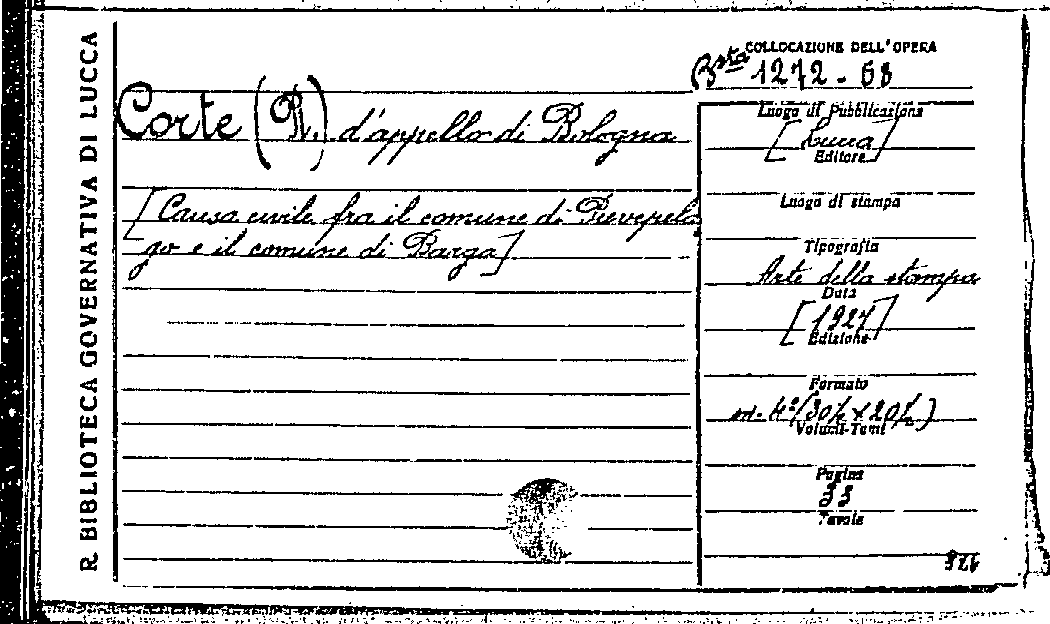 R. BIBLIOTECA GOVERNATIVA DI LUCCA
COLLOCAZIONE DELL'OPERA
Bsta 1272 - 68
Corte (R.) d'appello di Bologna
[Causa civile fra il comune di Pievepela
go e il comune di Barga]
Luogo di Pubblicazione
[Lucca]
Editore
Luogo di stampa
Tipografia
Arte della stampa
Data
[1927]
Edizione
Formato
in-4°(30½ x 20½)
Volumi-Tomi
Pagine
33
Tavole